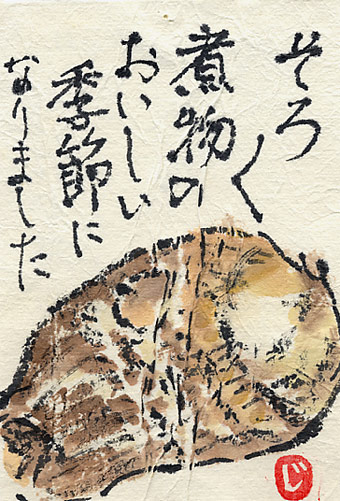 そろ〱
煮物の
おいしい
季節に
なりました
じ